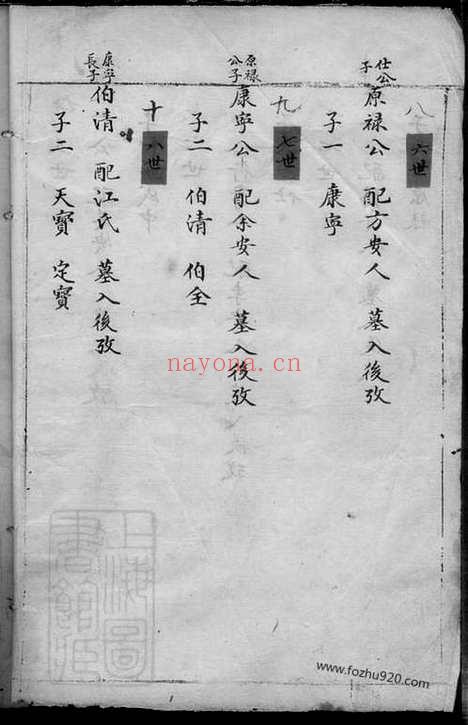 八 六世
仕公子
原禄公 配方安人 墓入後攷
子一 康寧
九 七世
原禄公子
康寧公 配余安人 墓入後攷
子二 伯清 伯全
十 八世
康寧長子
伯清公 配江氏 墓入後攷
子二 天寶 定寶
nayona.cn
上海圖書館藏
www.fozhu920.com